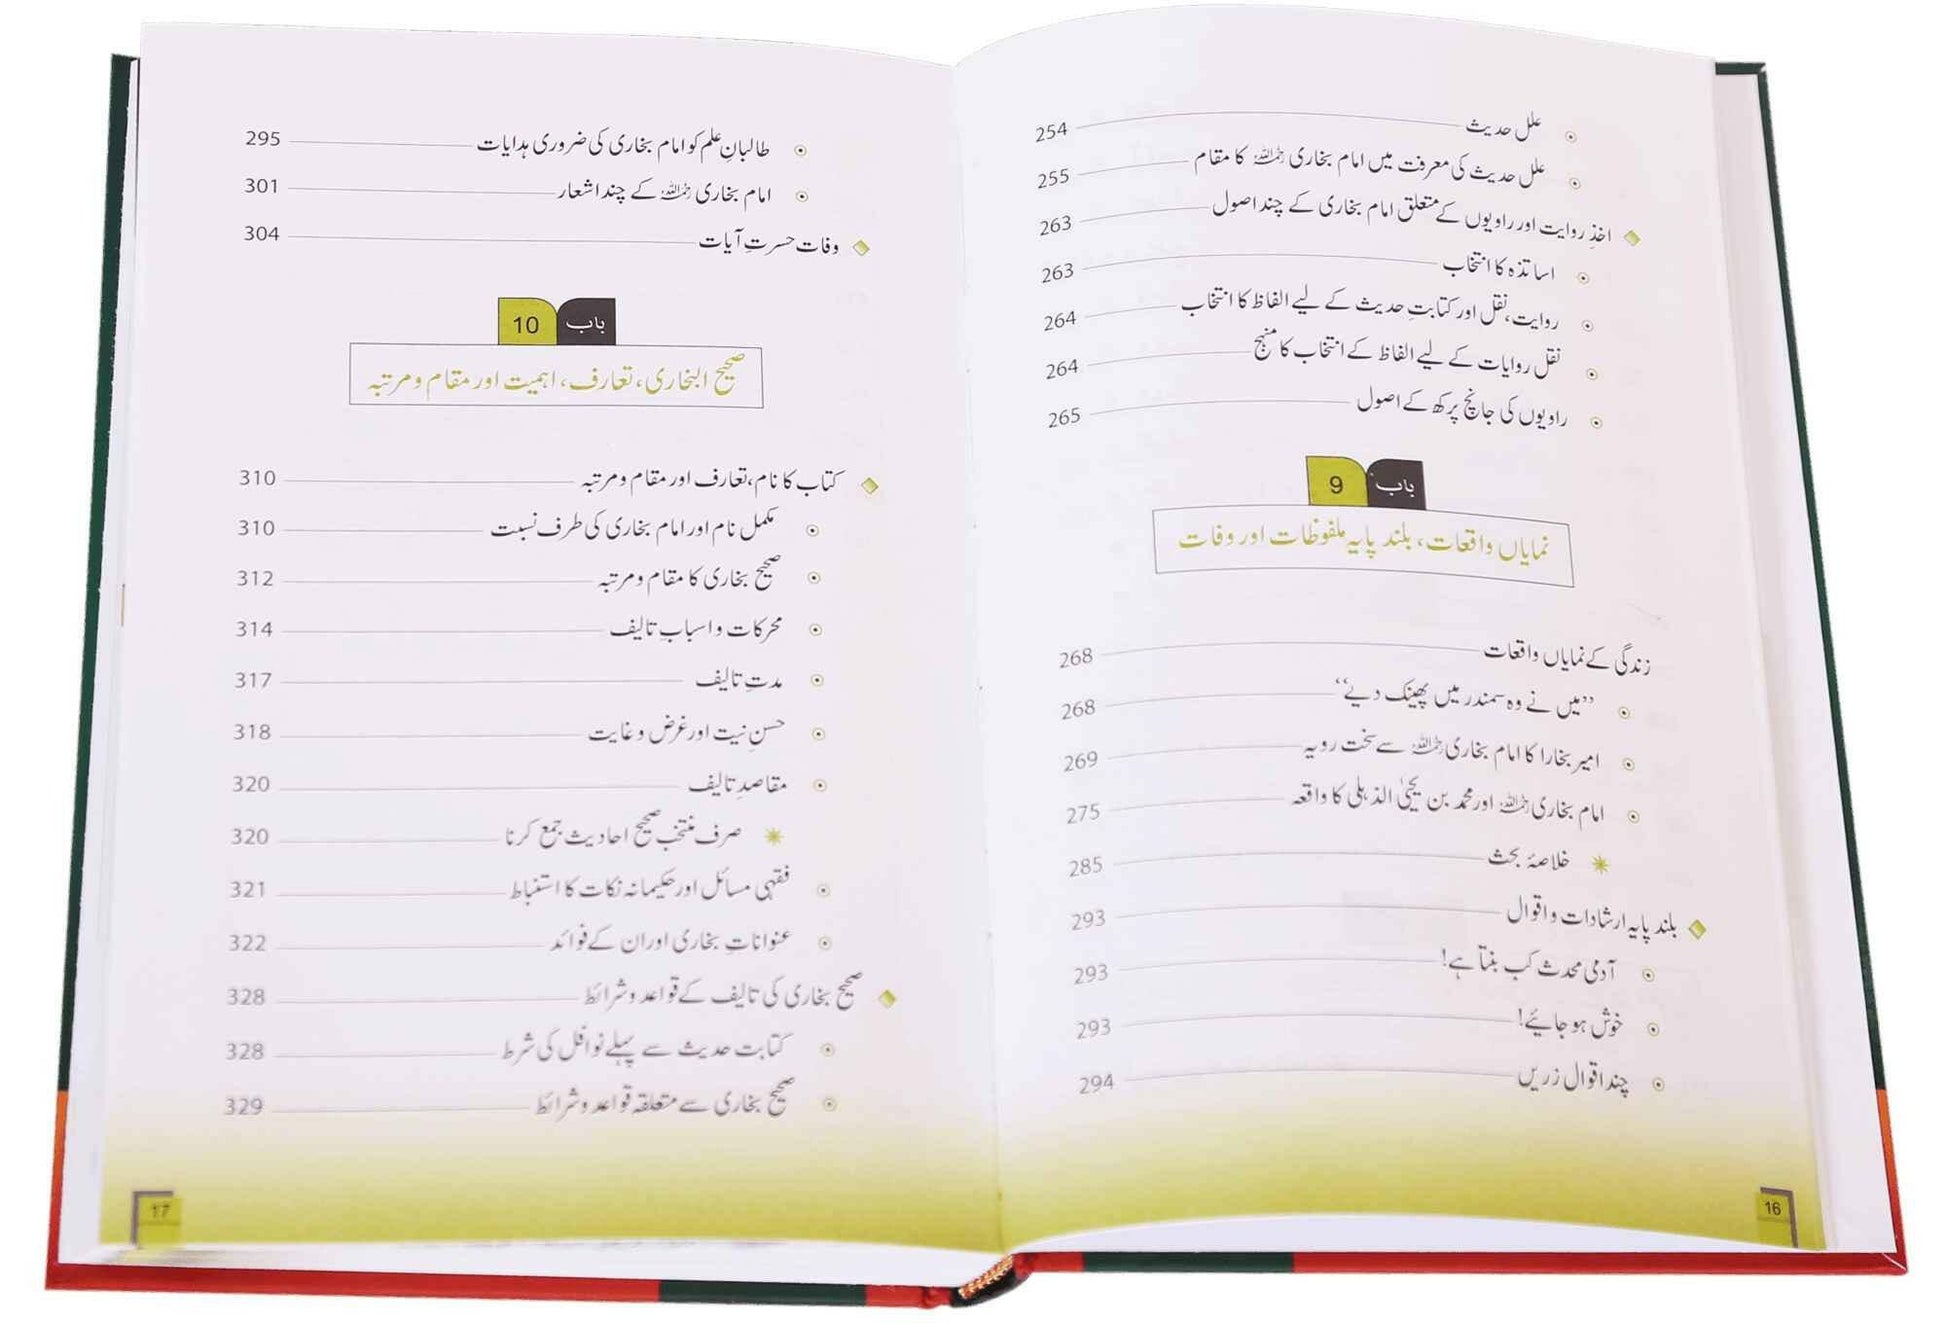 علل حدیث 254
علل حدیث کی معرفت میں امام بخاری رحمہ اللہ کا مقام 255
اخذِ روایت اور راویوں کے متعلق امام بخاری کے چند اصول 263
اساتذہ کا انتخاب 263
روایت، نقل اور کتابتِ حدیث کے لیے الفاظ کا انتخاب 264
نقل روایات کے لیے الفاظ کے انتخاب کا منہج 264
راویوں کی جانچ پرکھ کے اصول 265
باب 9
نمایاں واقعات، بلند پایہ ملفوظات اور وفات
زندگی کے نمایاں واقعات 268
’’میں نے وہ سمندر میں پھینک دیے‘‘ 268
امیر بخارا کا امام بخاری رحمہ اللہ سے سخت رویہ 269
امام بخاری رحمہ اللہ اور محمد بن یحییٰ الذہلی کا واقعہ 275
خلاصۂ بحث 285
بلند پایہ ارشادات و اقوال 293
آدمی محدث کب بنتا ہے! 293
خوش ہو جائیے! 293
چند اقوال زریں 294
16
طالبانِ علم کو امام بخاری کی ضروری ہدایات 295
امام بخاری رحمہ اللہ کے چند اشعار 301
وفات حسرتِ آیات 304
باب 10
صحیح البخاری، تعارف، اہمیت اور مقام و مرتبہ
کتاب کا نام، تعارف اور مقام و مرتبہ 310
مکمل نام اور امام بخاری کی طرف نسبت 310
صحیح بخاری کا مقام و مرتبہ 312
محرکات و اسبابِ تالیف 314
مدتِ تالیف 317
حسنِ نیت اور غرض و غایت 318
مقاصدِ تالیف 320
صرف منتخب صحیح احادیث جمع کرنا 320
فقہی مسائل اور حکیمانہ نکات کا استنباط 321
عنواناتِ بخاری اور ان کے فوائد 322
صحیح بخاری کی تالیف کے قواعد و شرائط 328
کتابت حدیث سے پہلے نوافل کی شرط 328
صحیح بخاری سے متعلقہ قواعد و شرائط 329
17